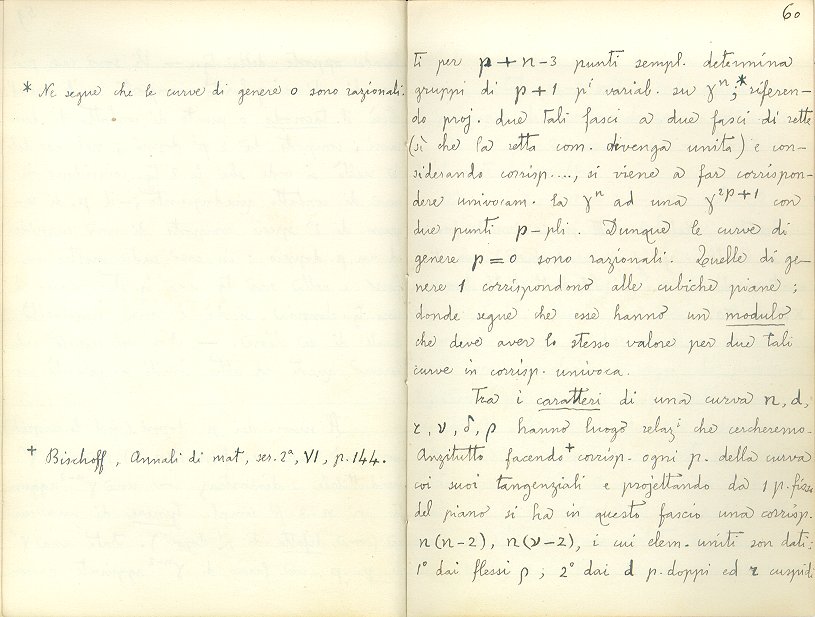 * Ne segue che le curve di genere 0 sono razionali.
+ Bischoff, Annali di mat, ser. 2ª, VI, p. 144.
60
ti per p+n-3 punti sempl. determina
gruppi di p+1 pⁱ variab. su γⁿ;* riferen-
do proj. due tali fasci a due fasci di rette
(sì che la retta com. divenga unita) e con-
siderando corrisp...., si viene a far corrispon-
dere univocam. la γⁿ ad una γ²ᵖ⁺¹ con
due punti p-pli. Dunque le curve di
genere p=0 sono razionali. Quelle di ge-
nere 1 corrispondono alle cubiche piane;
donde segue che esse hanno un modulo
che deve aver lo stesso valore per due tali
curve in corrisp. univoca.
Tra i caratteri di una curva n, d,
r, ν, δ, ρ hanno luogo relazⁱ che cercheremo.
Anzitutto facendo+ corrisp. ogni p. della curva
coi suoi tangenziali e projettando da 1 p. fisso
del piano si ha in questo fascio una corrisp.
n(n-2), n(ν-2), i cui elem. uniti son dati:
1° dai flessi ρ; 2° dai d p. doppi ed r cuspidi